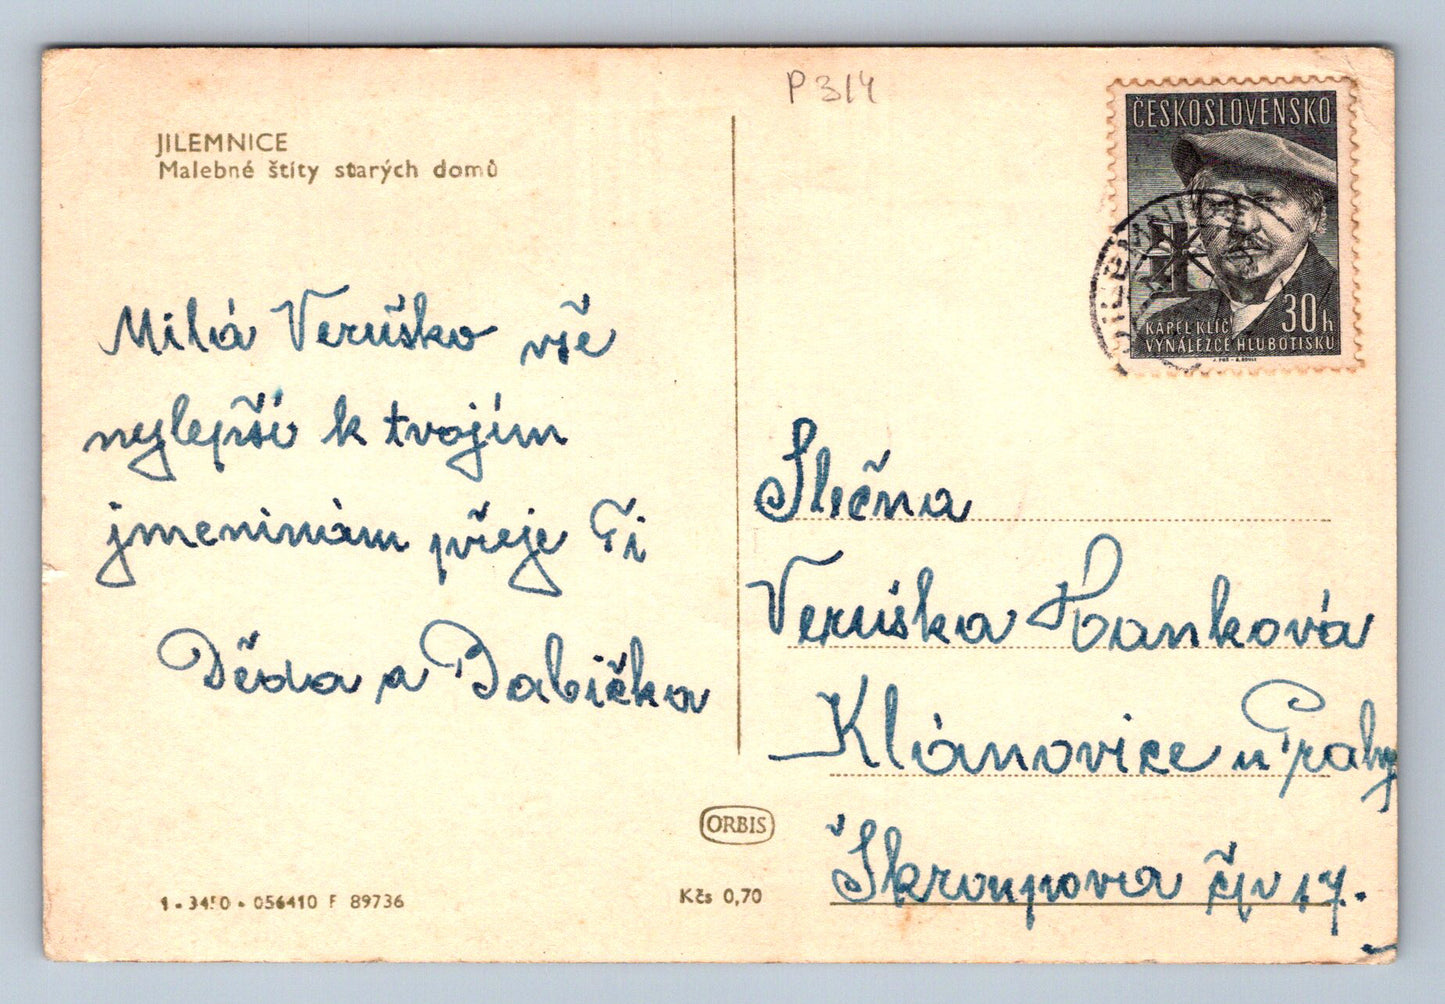 P 314
JILEMNICE
Malebné štíty starých domů
Milá Veruško vše
nejlepší k tvojím
jmeninám přeje Ti
Děda a Babička
ČESKOSLOVENSKO
KAREL KLÍČ
30h
VYNÁLEZCE HLUBOTISKU
JILEMNICE
Slečna
Veruška Hanková
Klánovice u Prahy
Škroupova čp 17.
ORBIS
Kčs 0,70
1 - 3450 - 056410 F 89736